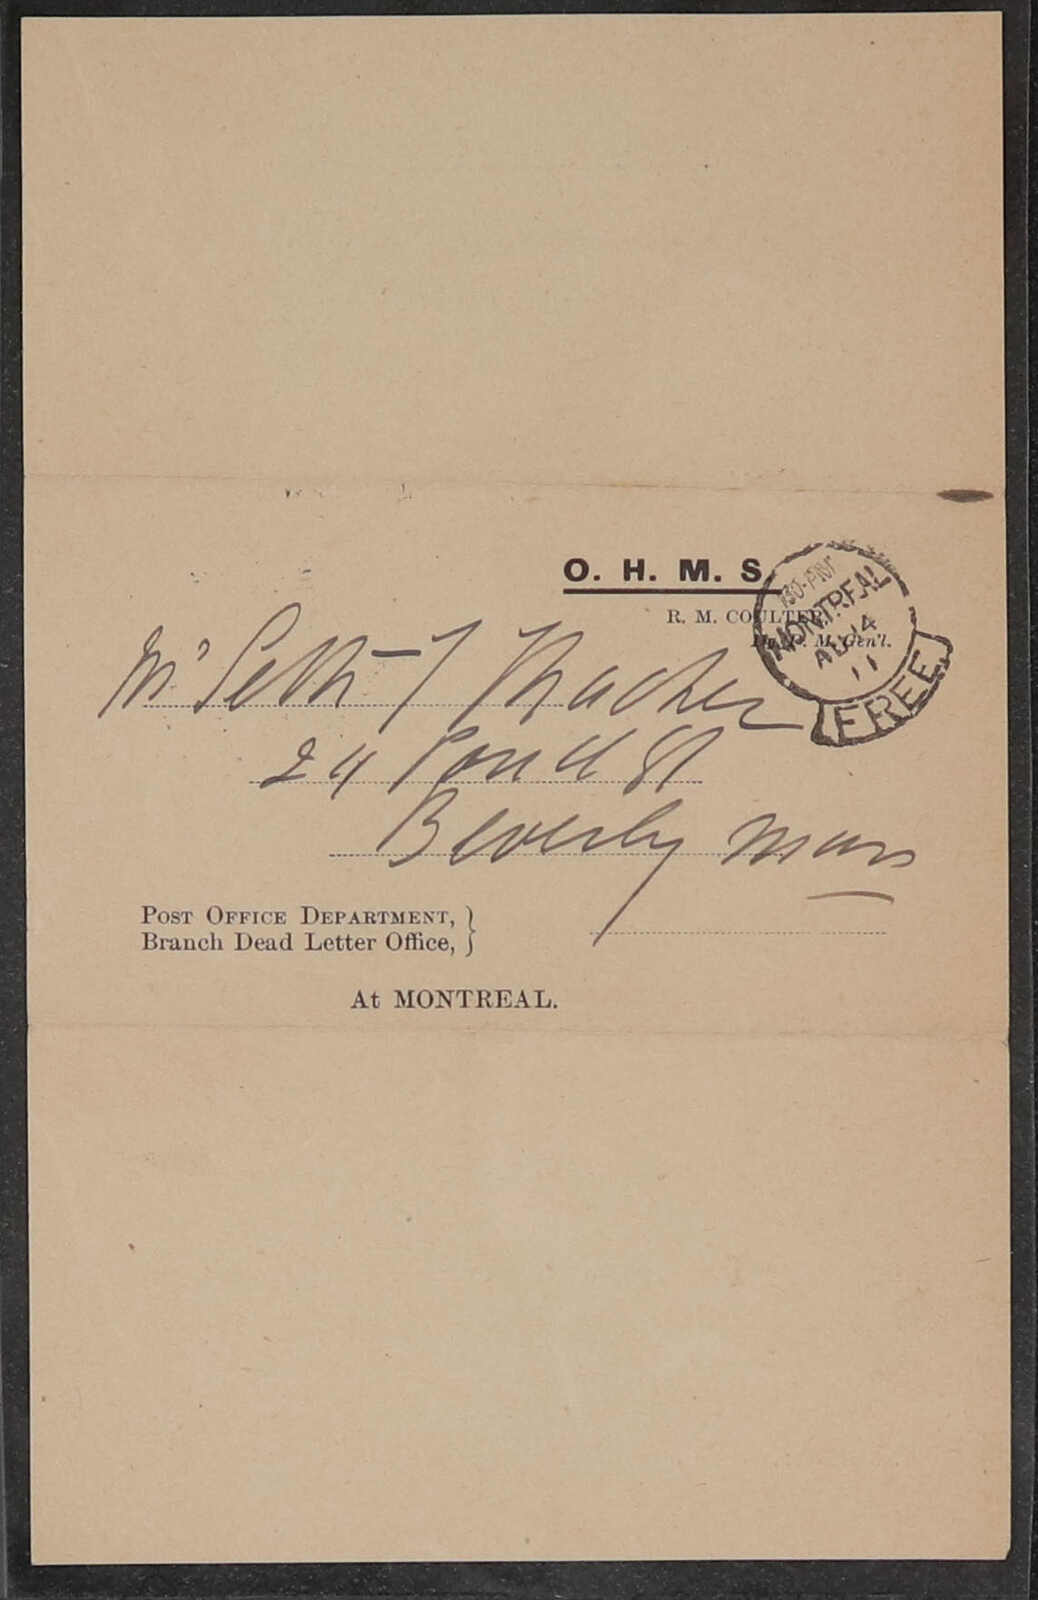 O. H. M. S.
R. M. COULTER,
M. Gen'l.
30-PM
MONTREAL
AU 14
11
FREE
Mr Seth T Thacher
24 Pond St
Beverly Mass
POST OFFICE DEPARTMENT, }
Branch Dead Letter Office, }
At MONTREAL.